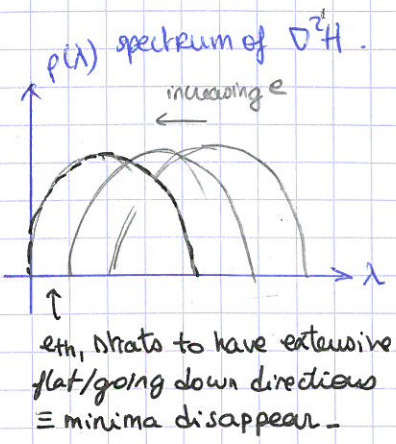 ρ(λ) spectrum of ∇²H.
increasing e
←
λ
↑
eth, strats to have extensive
flat/going down directions
≡ minima disappear -